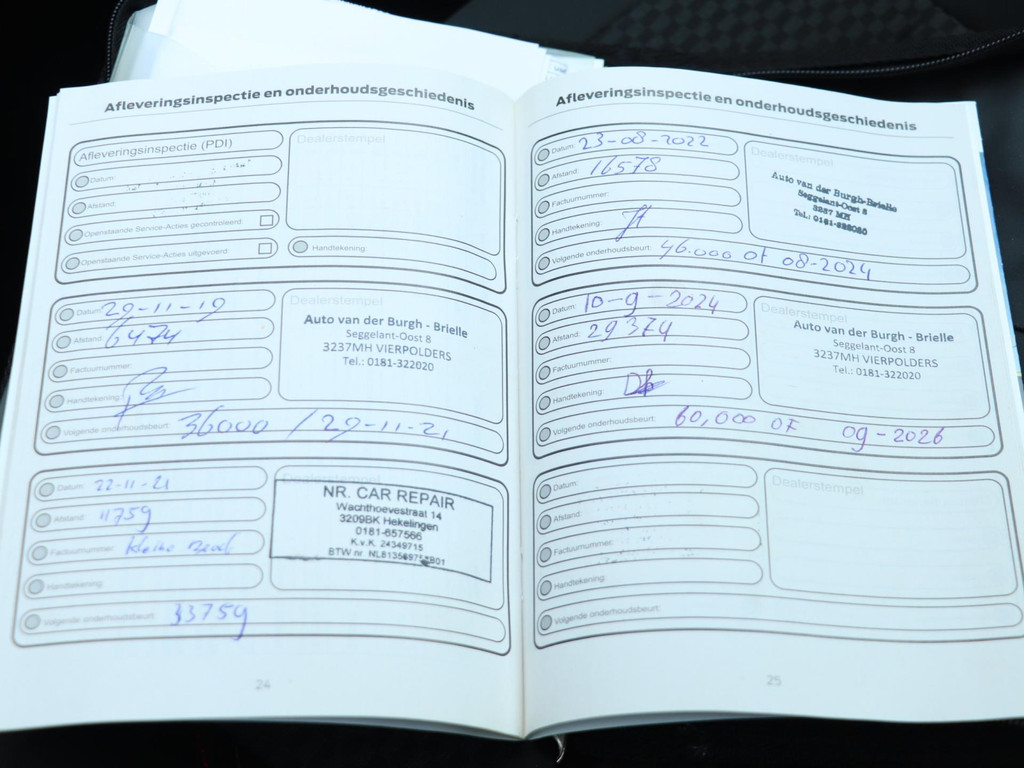 Afleveringsinspectie en onderhoudsgeschiedenis
Afleveringsinspectie (PDI)
Dealerstempel
Datum:
Afstand:
Openstaande Service-Acties gecontroleerd.
Openstaande Service-Acties uitgevoerd.
Handtekening:
Datum: 29-11-19
Dealerstempel
Afstand: 6474
Factuurnummer:
Handtekening:
Auto van der Burgh - Brielle
Seggelant-Oost 8
3237MH VIERPOLDERS
Tel.: 0181-322020
Volgende onderhoudsbeurt: 36000 / 29-11-21
Datum: 22-11-21
Dealerstempel
Afstand: 11759
Factuurnummer: kleine
Handtekening:
NR. CAR REPAIR
Wachthoevestraat 14
3209BK Hekelingen
0181-657566
K.v.K. 24349715
BTW nr. NL8135697 B01
Volgende onderhoudsbeurt: 33759
24
Afleveringsinspectie en onderhoudsgeschiedenis
Datum: 23-08-2022
Dealerstempel
Afstand: 16578
Factuurnummer:
Handtekening:
Auto van der Burgh-Brielle
Seggelant-Oost 8
3237 MH
Tel.: 0181-322020
Volgende onderhoudsbeurt: 46.000 of 08-2024
Datum: 10-9-2024
Dealerstempel
Afstand: 29374
Factuurnummer:
Handtekening:
Auto van der Burgh - Brielle
Seggelant-Oost 8
3237MH VIERPOLDERS
Tel.: 0181-322020
Volgende onderhoudsbeurt: 60,000 OF 09-2026
Datum:
Dealerstempel
Afstand:
Factuurnummer:
Handtekening:
Volgende onderhoudsbeurt:
25